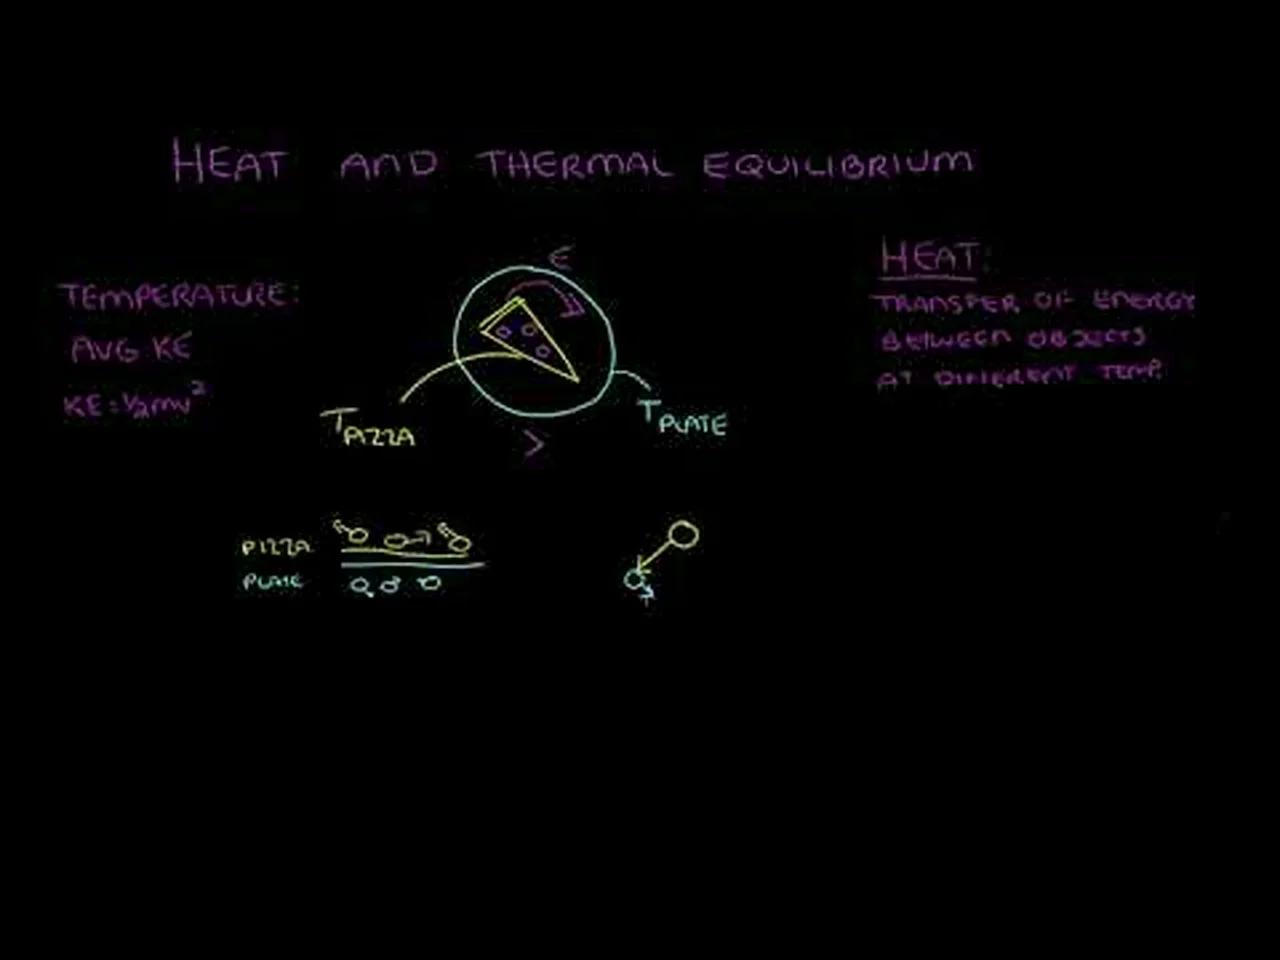 HEAT AND THERMAL EQUILIBRIUM
TEMPERATURE:
AVG KE
KE = 1/2mv²
E
T PIZZA
>
T PLATE
HEAT:
TRANSFER OF ENERGY
BETWEEN OBJECTS
AT DIFFERENT TEMP.
PIZZA
PLATE